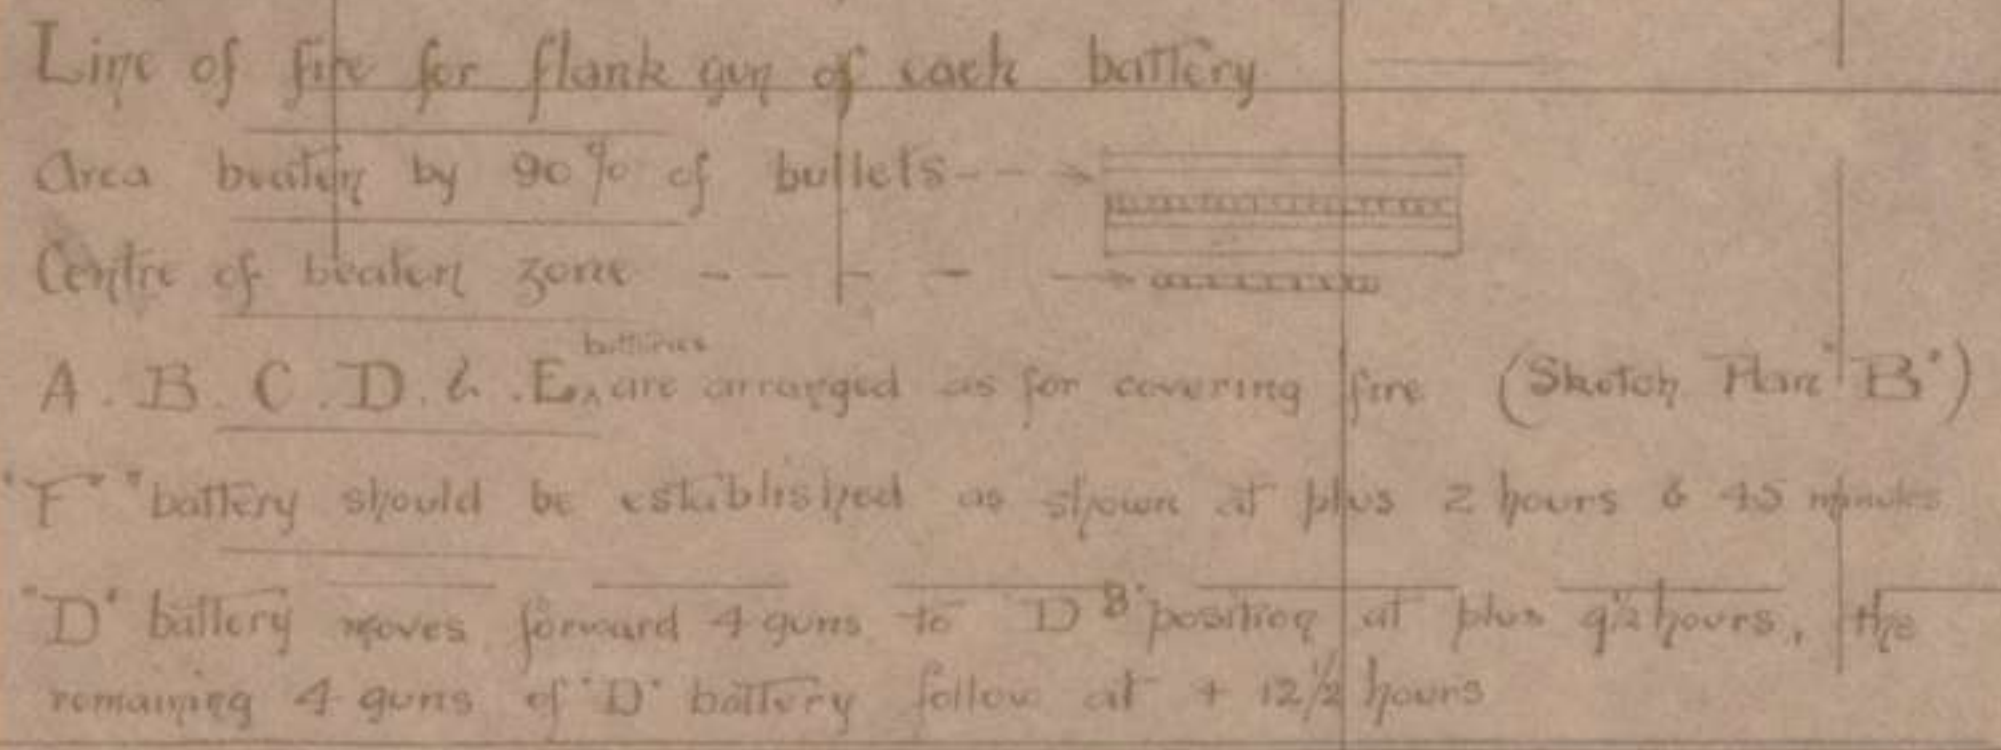 Line of fire for flank gun of each battery
Area beaten by 90% of bullets
Centre of beaten zone
A. B. C. D. & .E batteries are arranged as for covering fire (Sketch Plan "B")
"F" battery should be established as shown at plus 2 hours & 45 minutes
"D" battery moves forward 4 guns to "D B" position at plus 9½ hours, the
remaining 4 guns of "D" battery follow at + 12½ hours